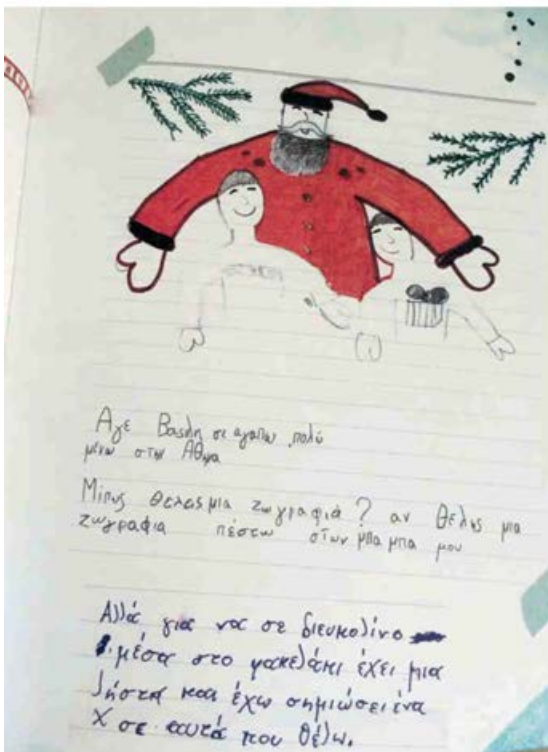 Αγε Βασλη σε αγαπω πολύ
μένω στην Αθηνα
Μίπως θελεις μια ζωγραφιά ? αν θέλης μια
ζωγραφια πέστω στων μπα μπα μου
Αλλά για να σε διευκολίνο
μέσα στο φακελάκι έχει μια
λήστα και έχω σημιώσει ένα
Χ σε αυτά που θέλω.